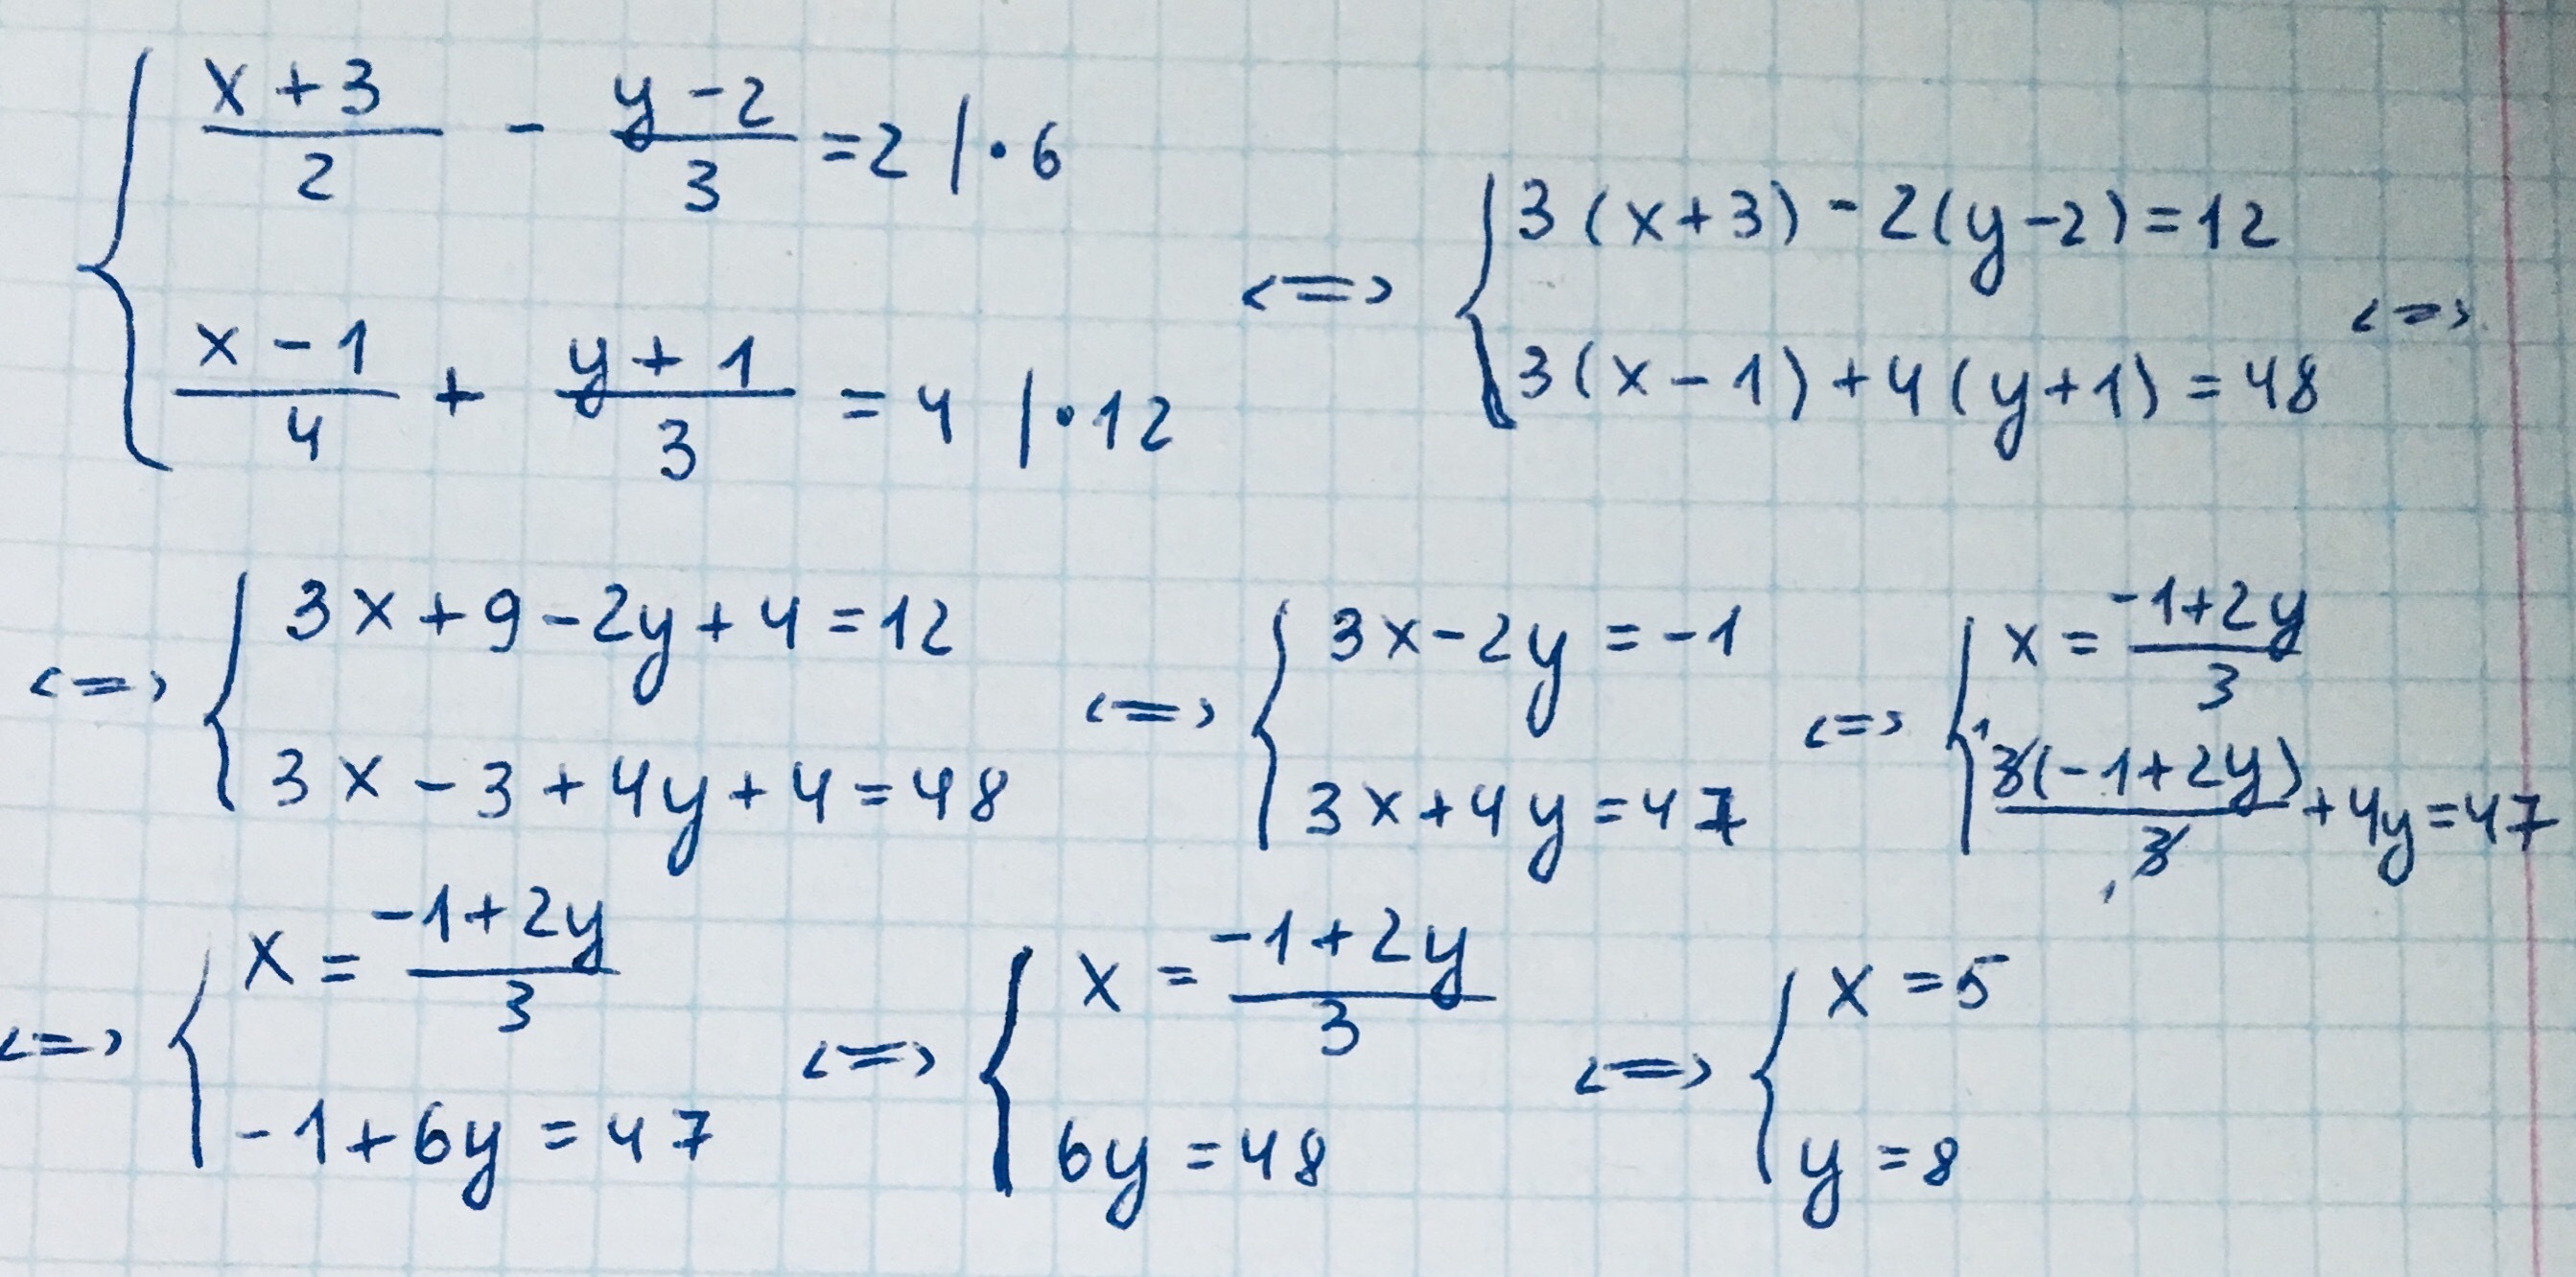 { (x+3)/2 - (y-2)/3 = 2 | · 6
(x-1)/4 + (y+1)/3 = 4 | · 12
<=> { 3(x+3) - 2(y-2) = 12
3(x-1) + 4(y+1) = 48 <=>
<=> { 3x + 9 - 2y + 4 = 12
3x - 3 + 4y + 4 = 48
<=> { 3x - 2y = -1
3x + 4y = 47
<=> { x = (-1+2y)/3
3(-1+2y)/3 + 4y = 47
<=> { x = (-1+2y)/3
-1 + 6y = 47
<=> { x = (-1+2y)/3
6y = 48
<=> { x = 5
y = 8